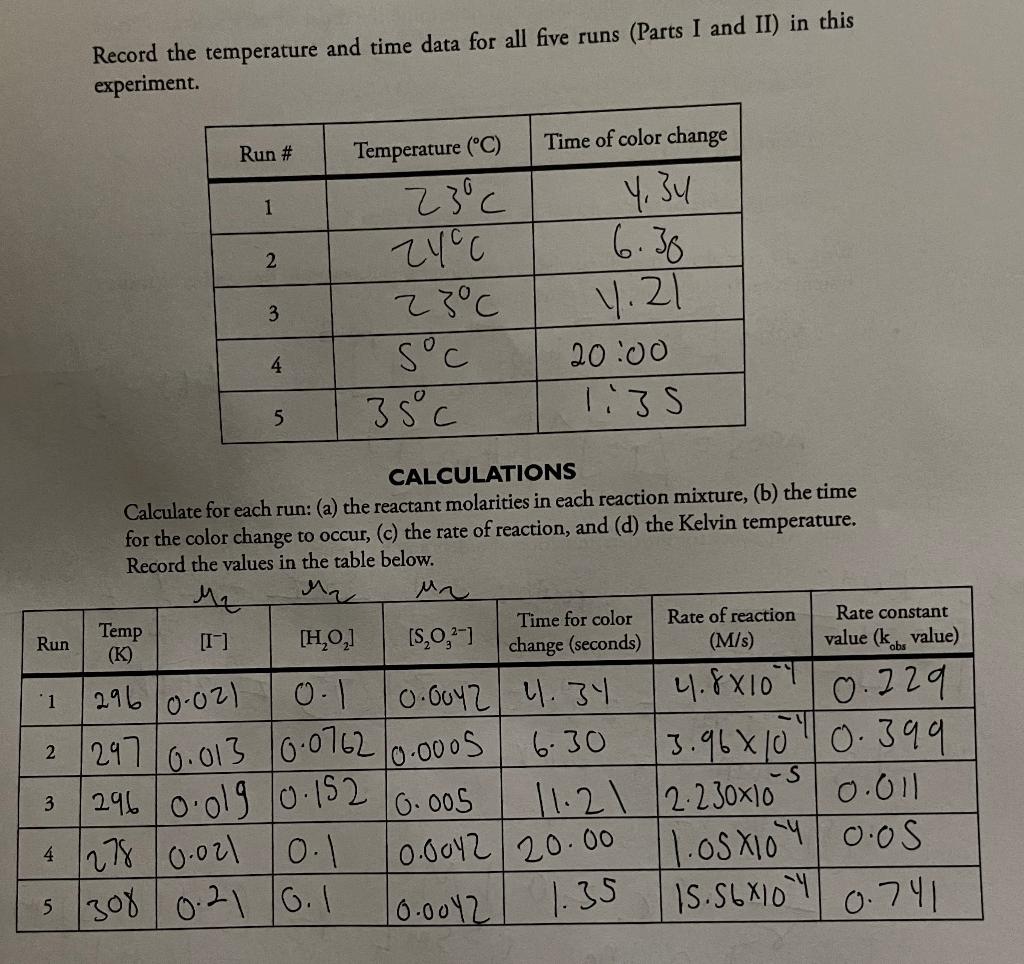 Record the temperature and time data for all five runs (Parts I and II) in this
experiment.
Run # Temperature (°C) Time of color change
1 23°C 4.34
2 24°C 6.30
3 23°C 4.21
4 5°C 20:00
5 35°C 1:35
CALCULATIONS
Calculate for each run: (a) the reactant molarities in each reaction mixture, (b) the time
for the color change to occur, (c) the rate of reaction, and (d) the Kelvin temperature.
Record the values in the table below.
M₂ M₂ M₂
Run Temp (K) [I⁻] [H₂O₂] [S₂O₃²⁻] Time for color change (seconds) Rate of reaction (M/s) Rate constant value (k_obs value)
1 296 0.021 0.1 0.0042 4.34 4.8X10⁻⁴ 0.229
2 297 0.013 0.0762 0.0005 6.30 3.96X10⁻⁴ 0.399
3 296 0.019 0.152 0.005 11.21 2.230X10⁻⁵ 0.011
4 278 0.021 0.1 0.0042 20.00 1.05X10⁻⁴ 0.05
5 308 0.21 0.1 0.0042 1.35 15.56X10⁻⁴ 0.741